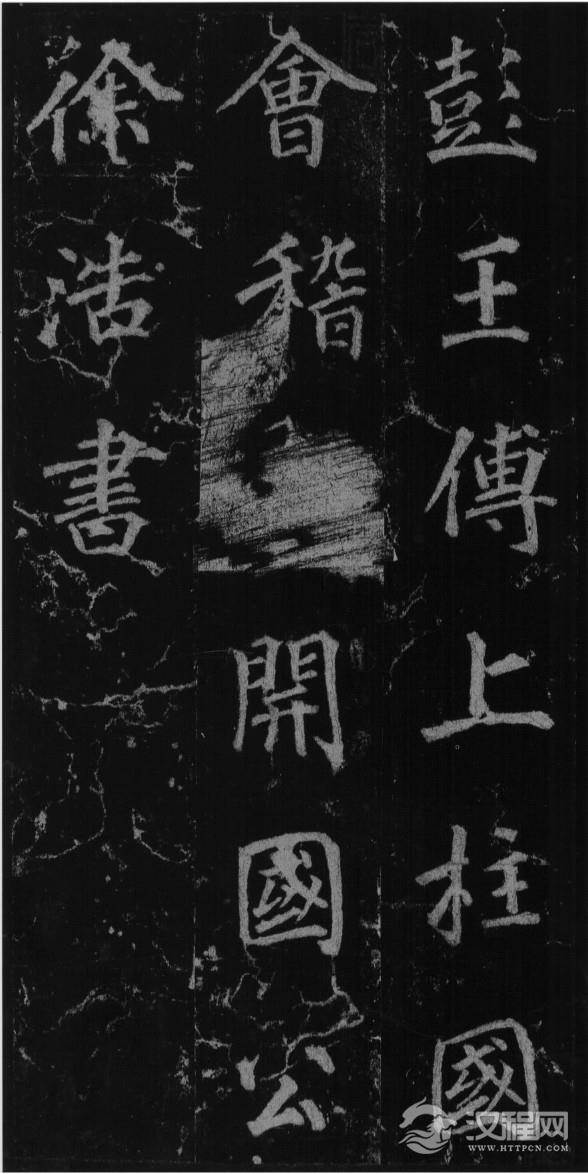 彭王傅上柱國
會稽開國公
徐浩書
汉程网
WWW.HTTPCN.COM